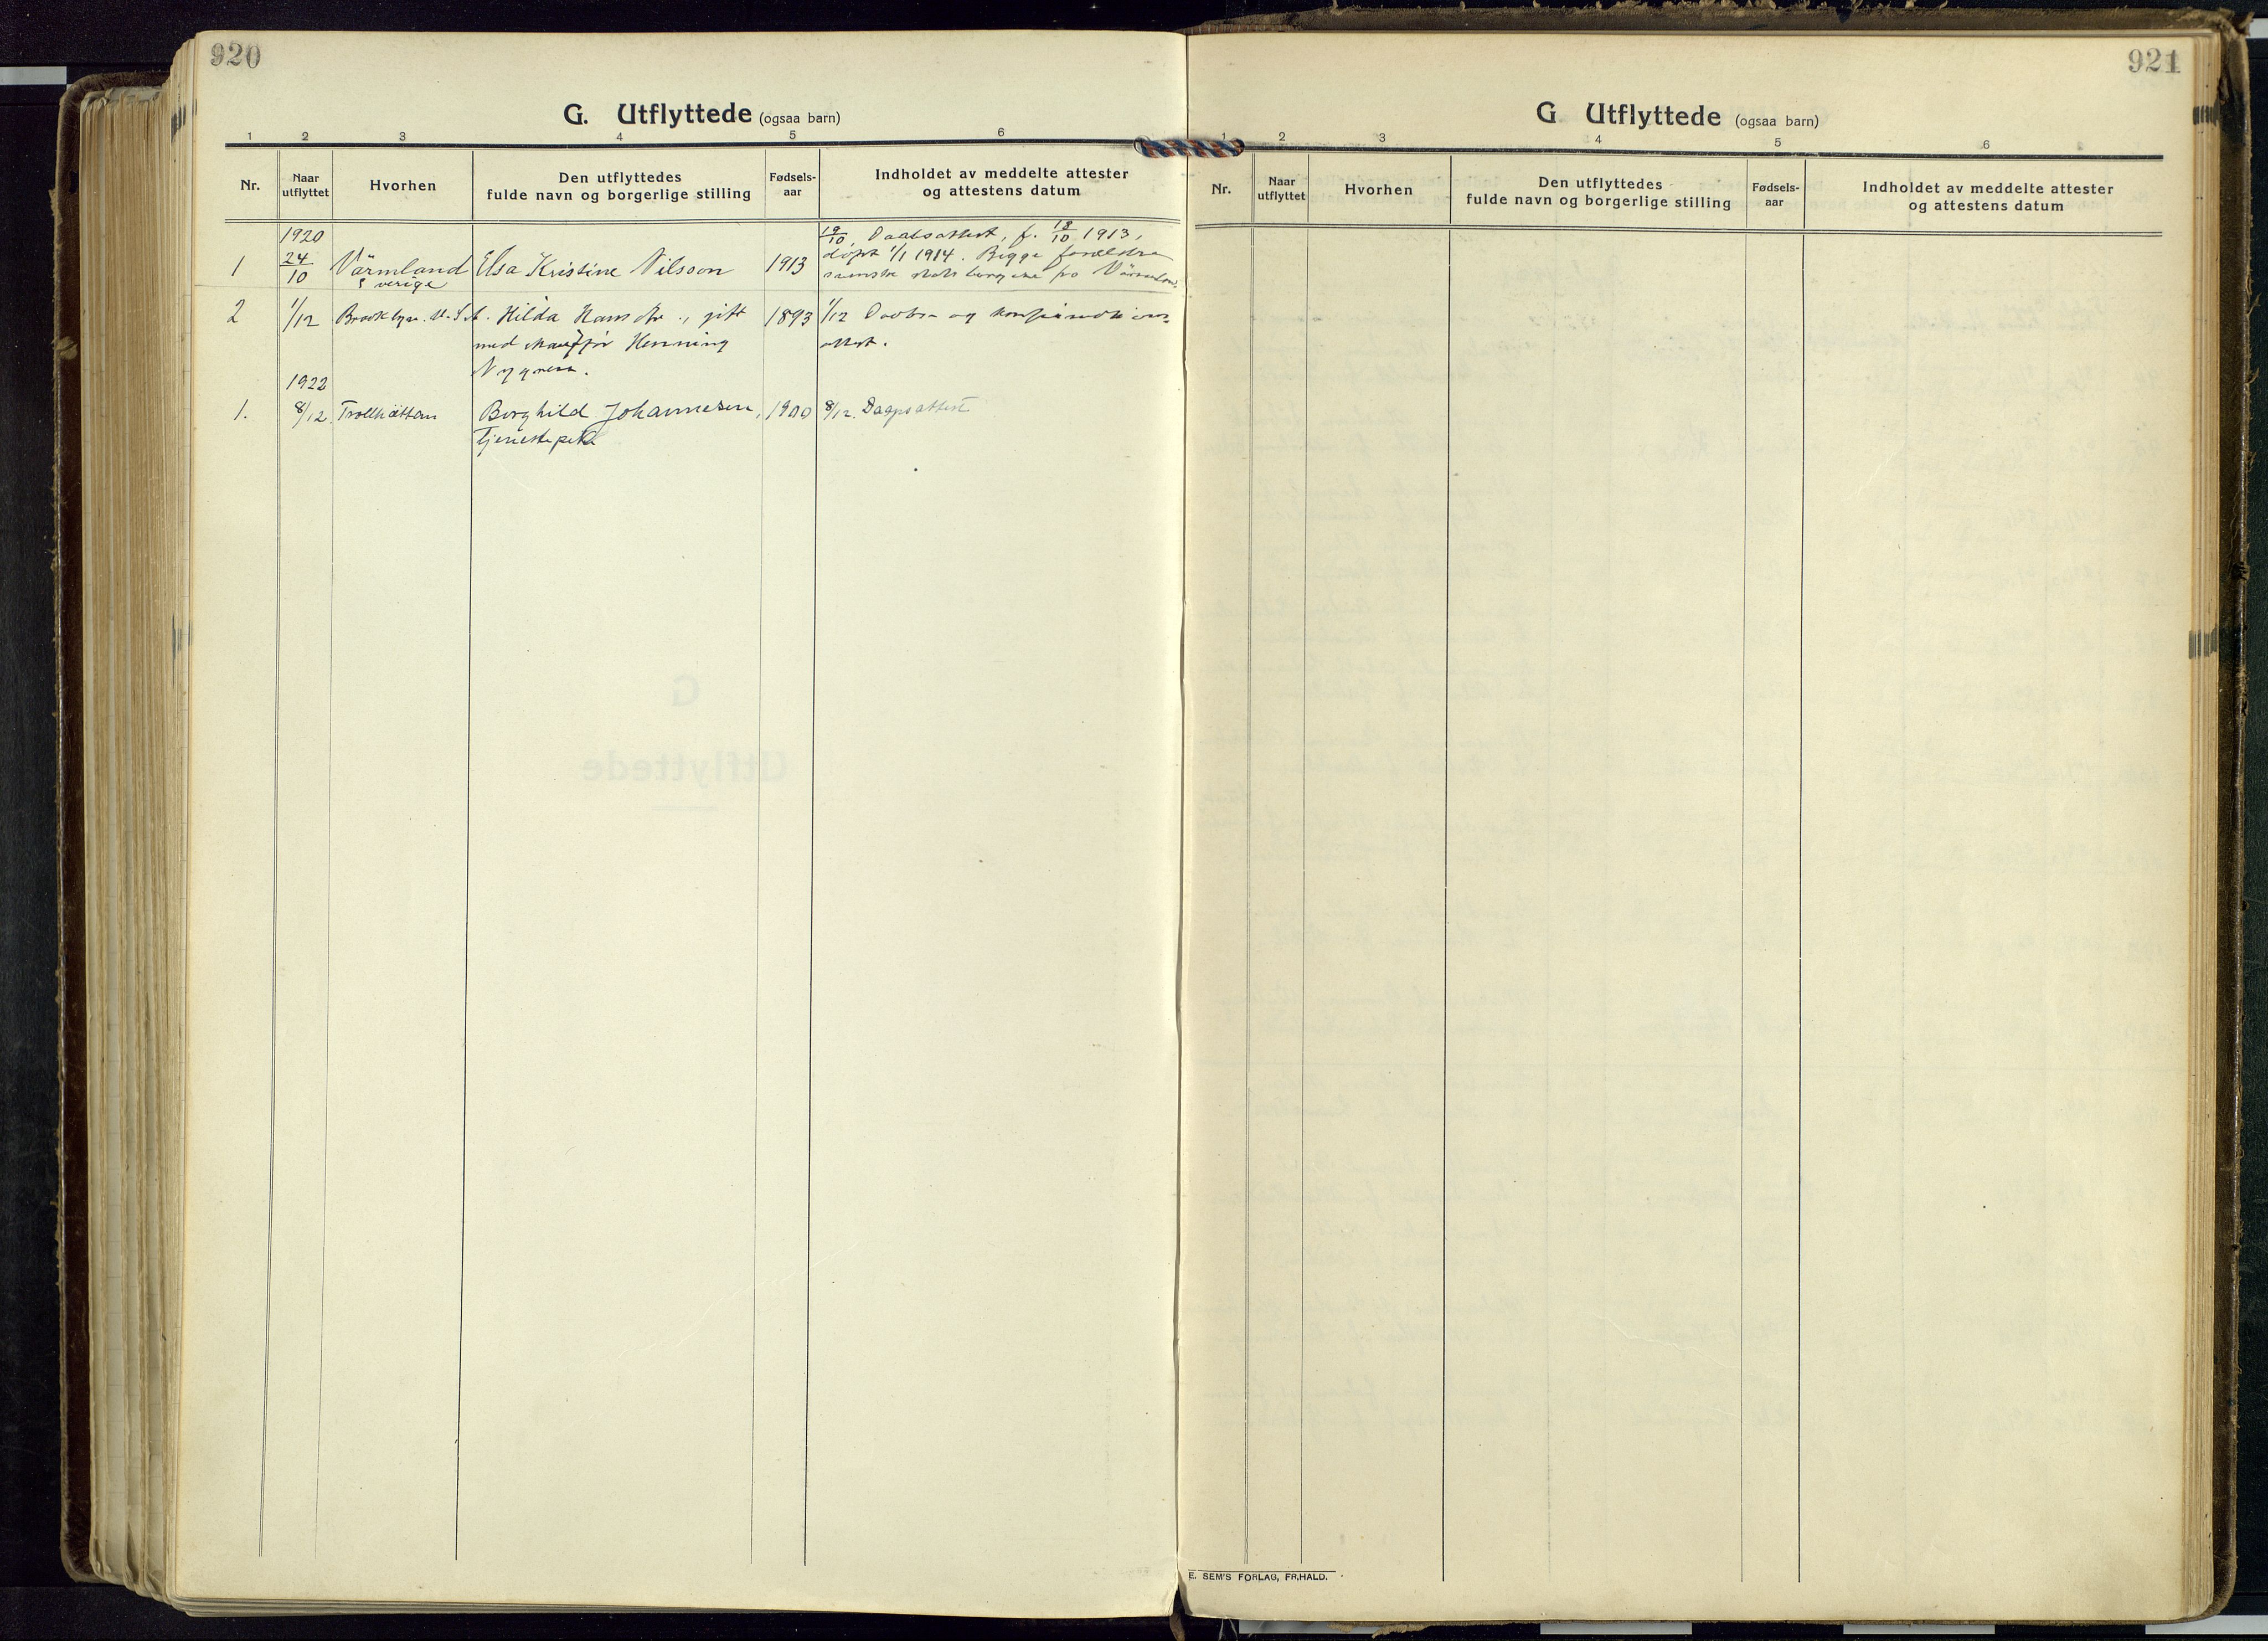 920
G. Utflyttede (ogsaa barn)
1 2 3 4 5 6
Nr. Naar utflyttet Hvorhen Den utflyttedes fulde navn og borgerlige stilling Fødsels-aar Indholdet av meddelte attester og attestens datum
1920
19/10. Daabsattest, f. 18/10 1913,
1 24/10 Värmland Elsa Kristine Nilsson 1913 døpt 1/1 1914. Begge forældre
Sverige svenske statsborgere fra
2 1/12 Brooklyn. U.S.A. Hilda , gift 1893 1/12 Daabs- og konfirmations-
med Henning attest.
Nygren.
1922
1. 8/12. Trollhättan Borghild Johannesen, 1900 8/12. Daapsattest
Tjenestepike
921
G Utflyttede (ogsaa barn)
1 2 3 4 5 6
Nr. Naar utflyttet Hvorhen Den utflyttedes fulde navn og borgerlige stilling Fødsels-aar Indholdet av meddelte attester og attestens datum
E. SEM'S FORLAG, FR.HALD.